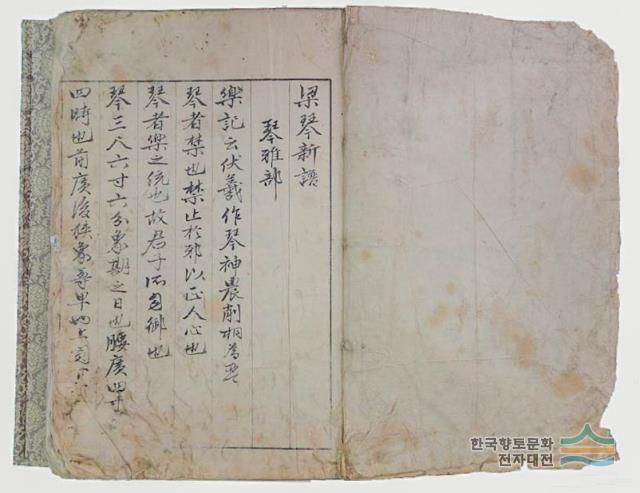 梁琴新譜
琴雅部
樂記云伏羲作琴神農削桐為琴
琴者禁也禁止於邪以正人心也
琴者樂之統也故君子所自御也
琴三尺六寸六分象期之日也腰廣四寸
四時也前廣後狹象尊卑也上圓下
한국향토문화
전자대전